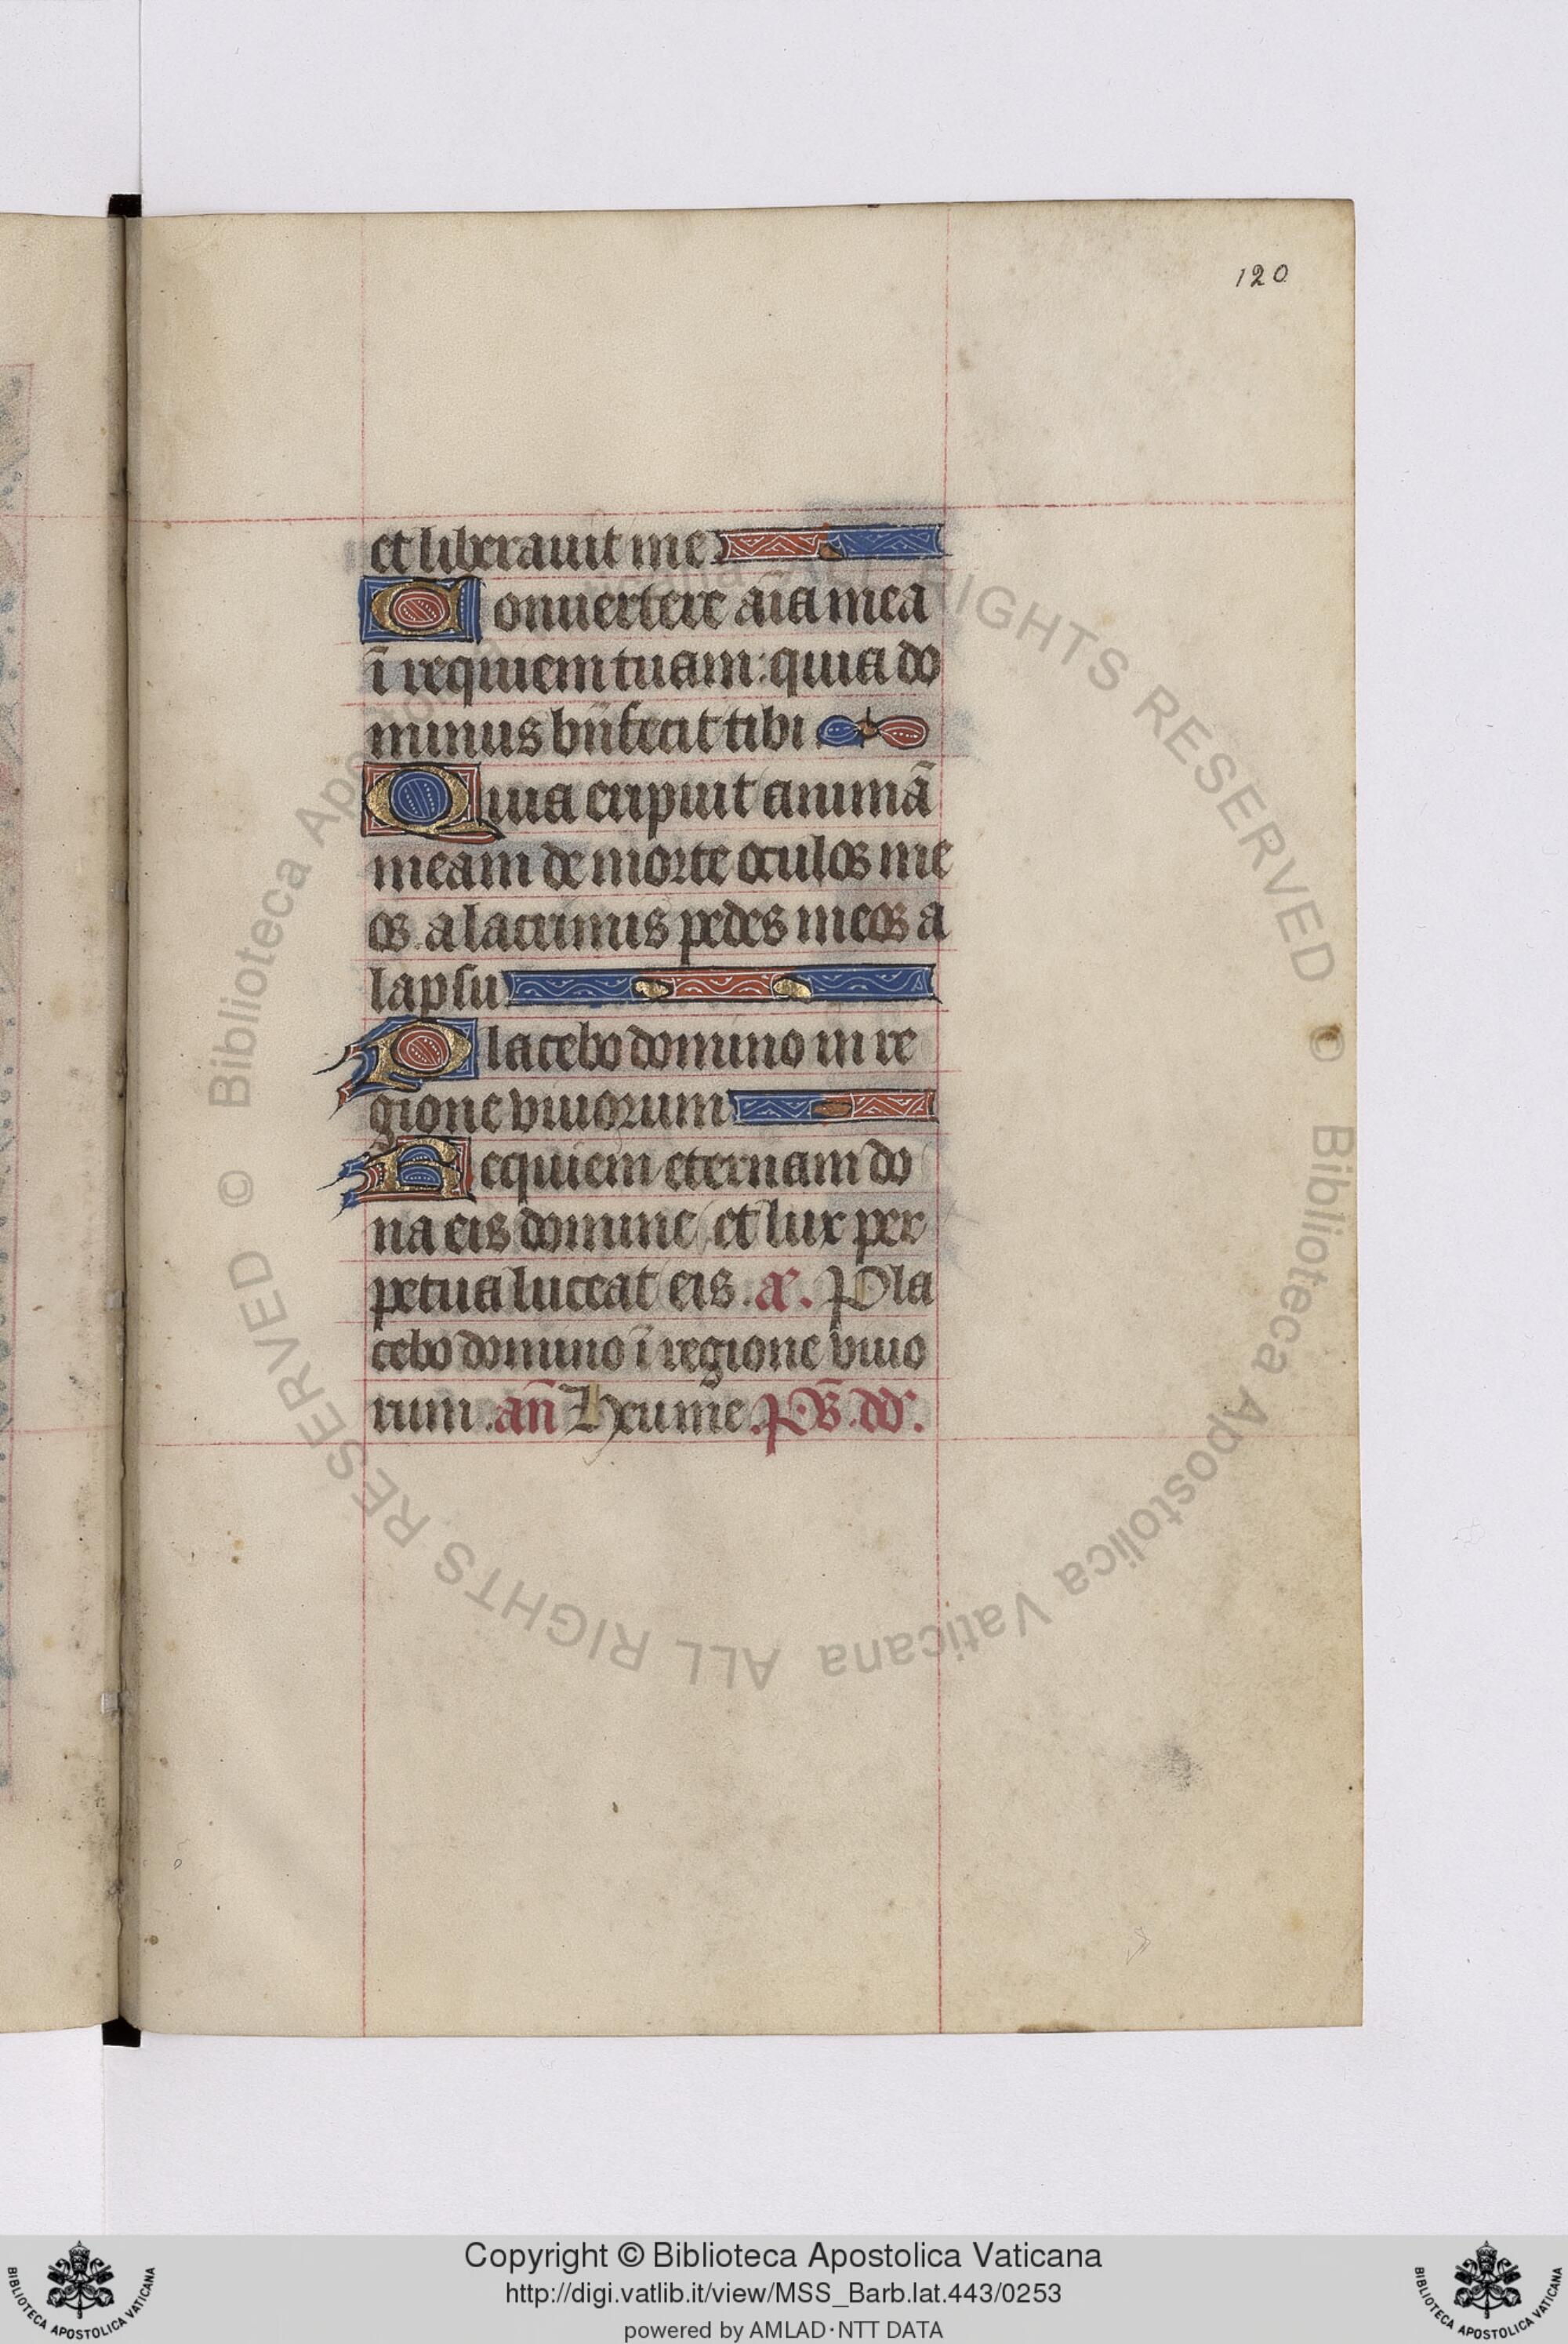 120
et liberauit me
Conuertere aĩa mea
ĩ requiem tuam: quia do
minus bñfecit tibi
Quia eripuit animã
meam de morte oculos me
os a lacrimis pedes meos a
lapsu
Placebo domino in re
gione viuorum
Requiem eternam do
na eis domine et lux per
petua luceat eis. Pla
cebo domino ĩ regione viuo
rum. añ Heu me.
© Biblioteca Apostolica Vaticana ALL RIGHTS RESERVED
© Biblioteca Apostolica Vaticana ALL RIGHTS RESERVED
Copyright © Biblioteca Apostolica Vaticana
http://digi.vatlib.it/view/MSS_Barb.lat.443/0253
powered by AMLAD·NTT DATA
BIBLIOTECA APOSTOLICA VATICANA
BIBLIOTECA APOSTOLICA VATICANA